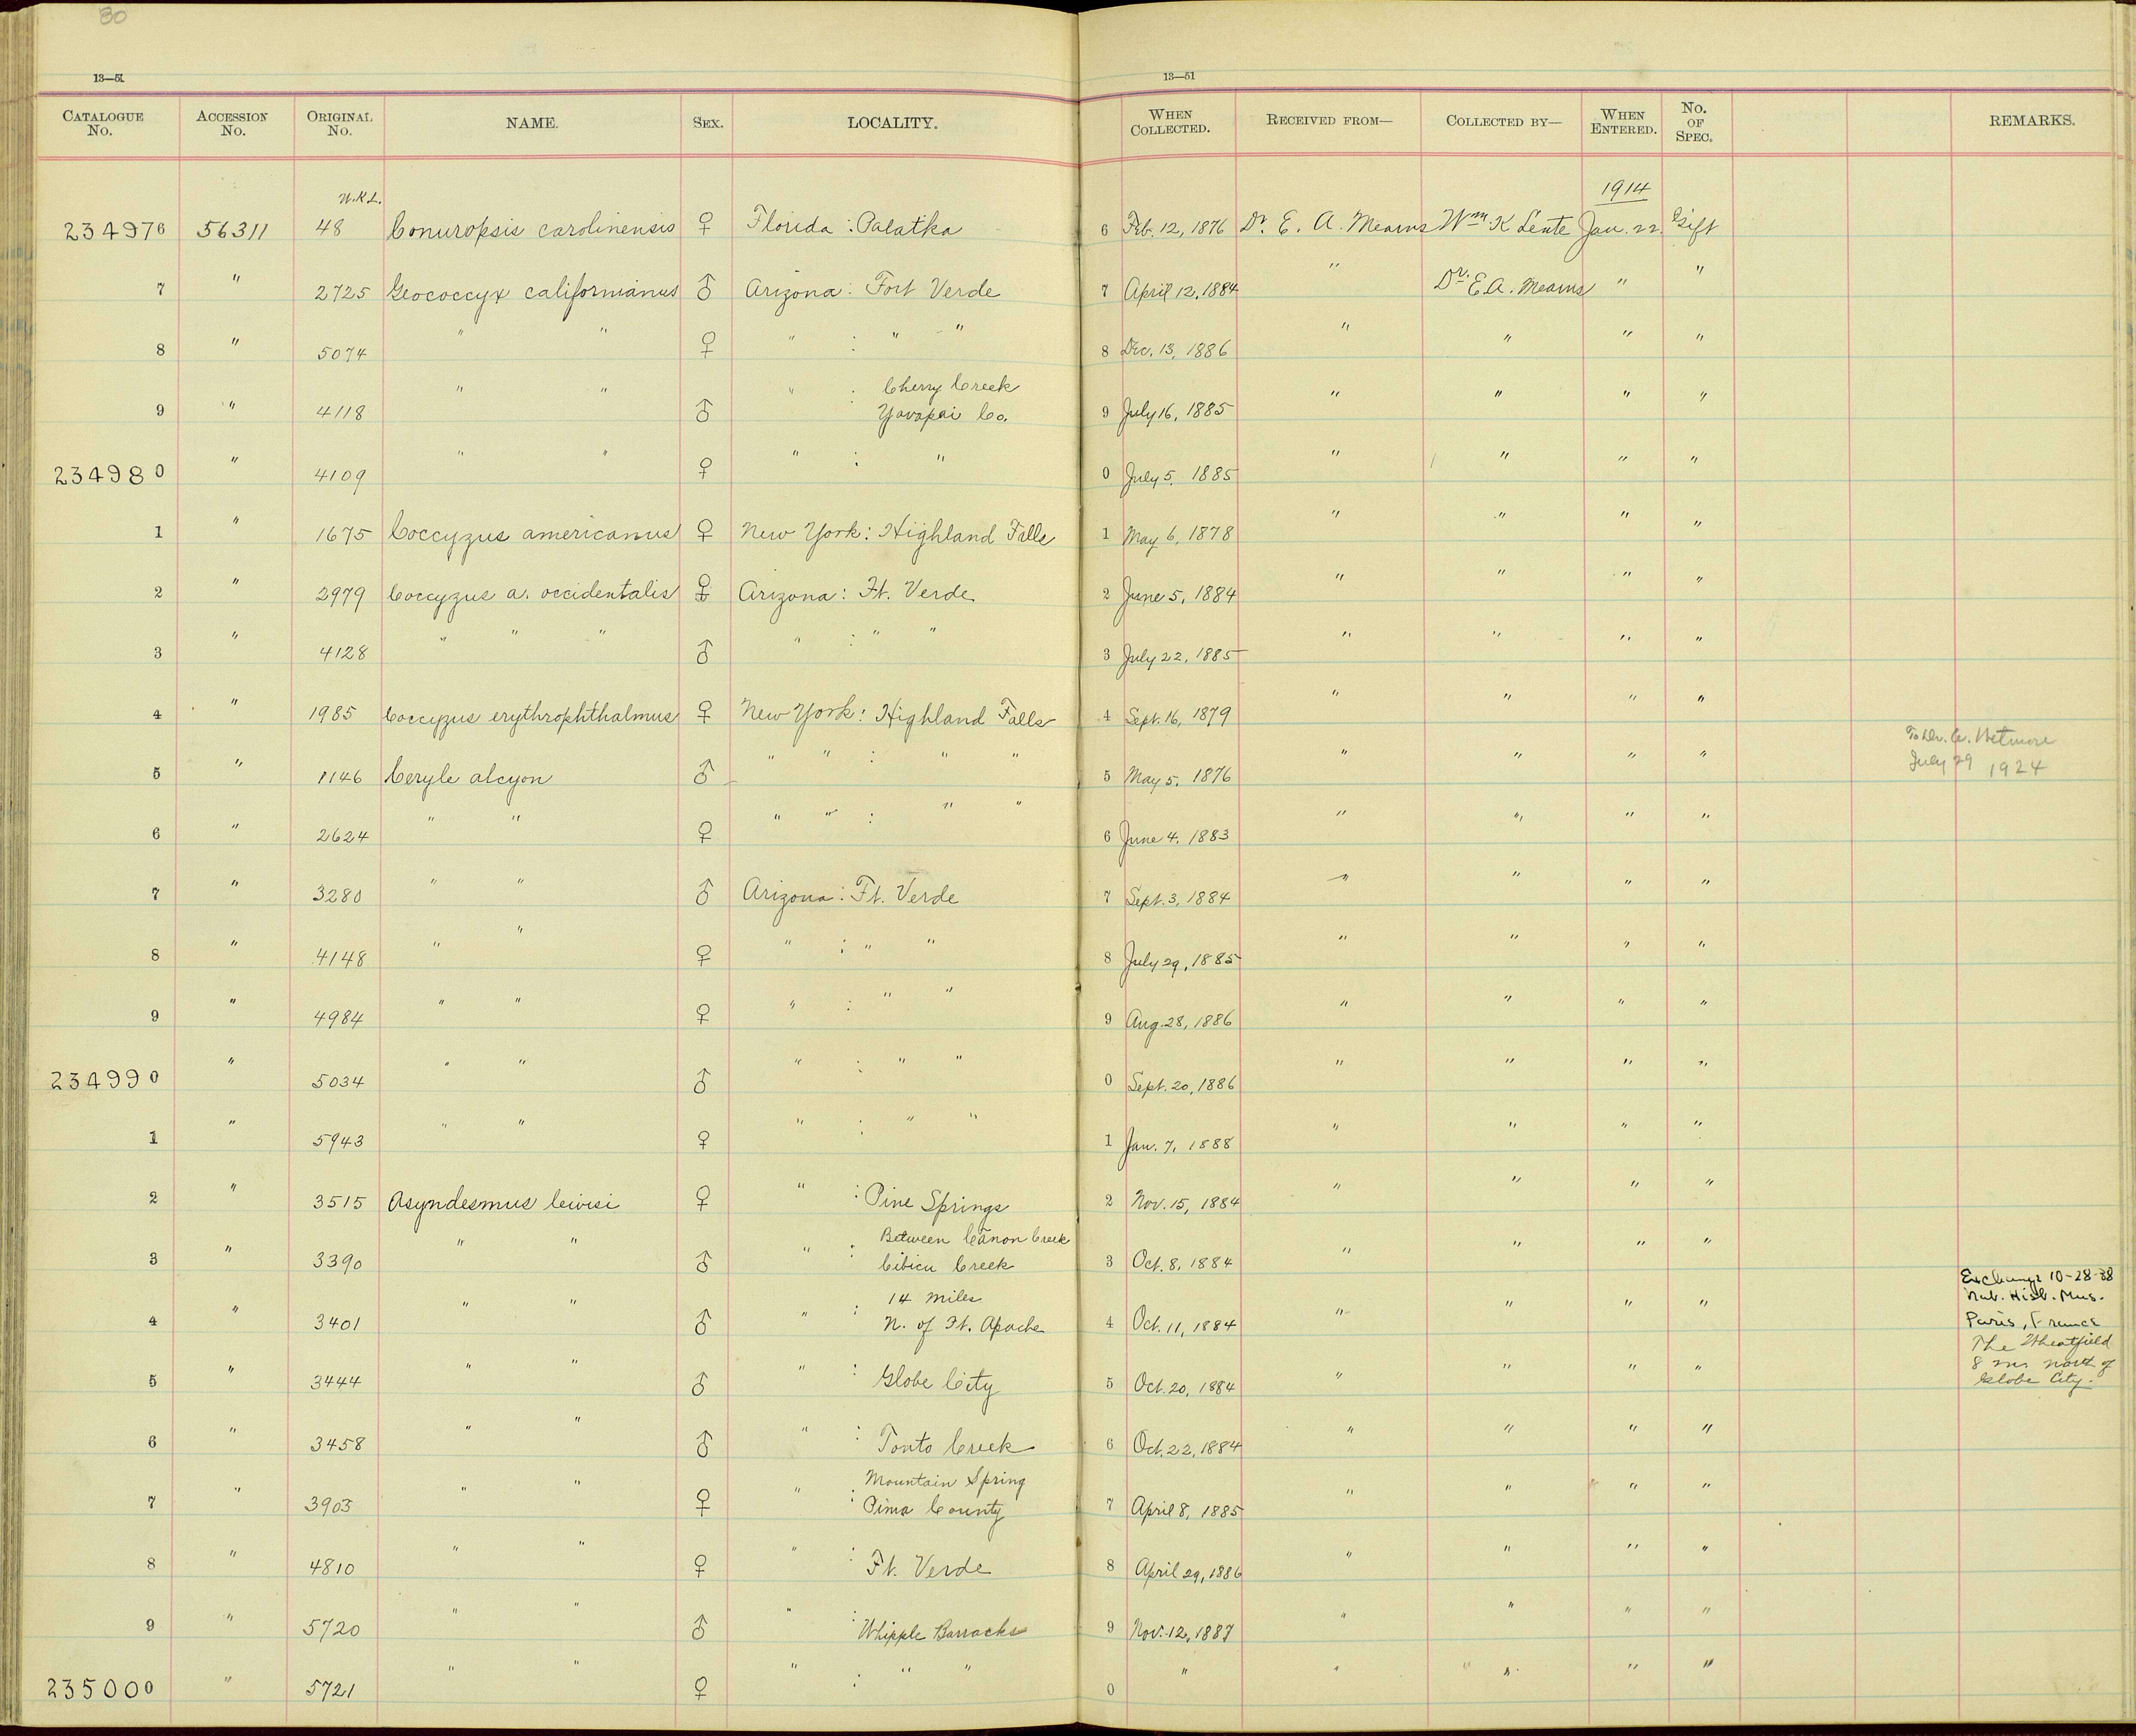 30
13—51
13—51
CATALOGUE No. ACCESSION No. ORIGINAL No. NAME. SEX. LOCALITY. WHEN COLLECTED. RECEIVED FROM— COLLECTED BY— WHEN ENTERED. No. OF SPEC. REMARKS.
W.K.L. 1914
234976 56311 48 Conuropsis carolinensis ♀ Florida : Palatka 6 Feb. 12, 1876 Dr. E. A. Mearns Wm. K Lente Jan. 22. Gift
7 " 2725 Geococcyx californianus ♂ Arizona : Fort Verde 7 April 12, 1884 " Dr. E.A. Mearns " "
8 " 5074 " " ♀ " : " " 8 Dec. 13, 1886 " " " "
9 " 4118 " " ♂ " : Cherry Creek Yavapai Co. 9 July 16, 1885 " " " "
234980 " 4109 " " ♀ " : " 0 July 5, 1885 " " " "
1 " 1675 Coccyzus americanus ♀ New York : Highland Falls 1 May 6, 1878 " " " "
2 " 2979 Coccyzus a. occidentalis ♀ Arizona : Ft. Verde 2 June 5, 1884 " " " "
3 " 4128 " " " ♂ " : " " 3 July 22, 1885 " " " "
4 " 1985 Coccyzus erythrophthalmus ♀ New York : Highland Falls 4 Sept. 16, 1879 " " " "
5 " 1146 Ceryle alcyon ♂ " " : " " 5 May 5, 1876 " " " " To Dr. A. Wetmore July 29 1924
6 " 2624 " " ♀ " " : " " 6 June 4, 1883 " " " "
7 " 3280 " " ♂ Arizona : Ft. Verde 7 Sept. 3, 1884 " " " "
8 " 4148 " " ♀ " : " " 8 July 29, 1885 " " " "
9 " 4984 " " ♀ " : " " 9 Aug. 28, 1886 " " " "
234990 " 5034 " " ♂ " : " " 0 Sept. 20, 1886 " " " "
1 " 5943 " " ♀ " : " " 1 Jan. 7, 1888 " " " "
2 " 3515 Asyndesmus lewisi ♀ " : Pine Springs 2 Nov. 15, 1884 " " " "
3 " 3390 " " ♂ " : Between Cañon Creek Cibicu Creek 3 Oct. 8, 1884 " " " "
4 " 3401 " " ♂ " : 14 miles N. of Ft. Apache 4 Oct. 11, 1884 " " " " Exchange 10-28-38 Nat. Hist. Mus. Paris, France
5 " 3444 " " ♂ " : Globe City 5 Oct. 20, 1884 " " " " The Wheatfield 8 ms north of Globe City.
6 " 3458 " " ♂ " : Tonto Creek 6 Oct. 22, 1884 " " " "
7 " 3903 " " ♀ " : Mountain Spring Pima County 7 April 8, 1885 " " " "
8 " 4810 " " ♀ " : Ft. Verde 8 April 29, 1886 " " " "
9 " 5720 " " ♂ " : Whipple Barracks 9 Nov. 12, 1887 " " " "
235000 " 5721 " " ♀ " : " " 0 " " " " "